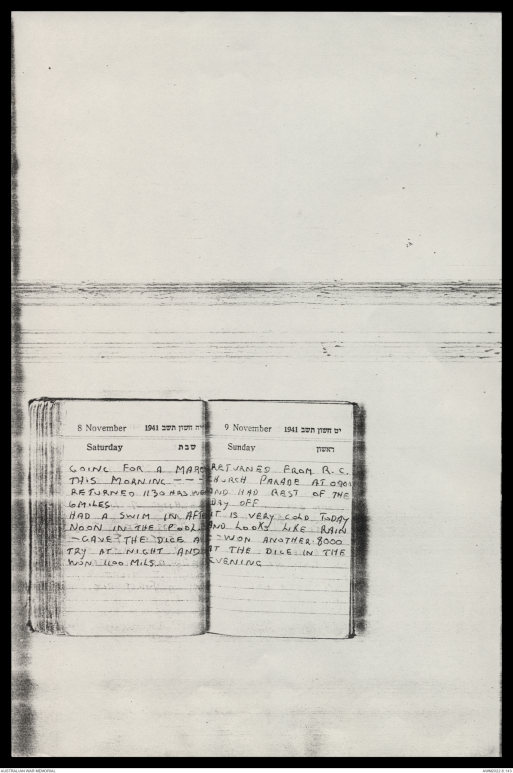 8 November 1941 יח חשון תשב
Saturday שבת
GOING FOR A MARC
THIS MORNING - - -
RETURNED 1130 HRS WE
6 MILES
HAD A SWIM IN AFT
NOON IN THE POOL
- GAVE THE DICE A
TRY AT NIGHT AND
WON 1100 MILS
9 November 1941 יט חשון תשב
Sunday ראשון
RETURNED FROM R. C.
CHURCH PARADE AT 0900
AND HAD REST OF THE
DAY OFF
IT IS VERY COLD TODAY
AND LOOKS LIKE RAIN
- WON ANOTHER 8000
AT THE DICE IN THE
EVENING
AUSTRALIAN WAR MEMORIAL